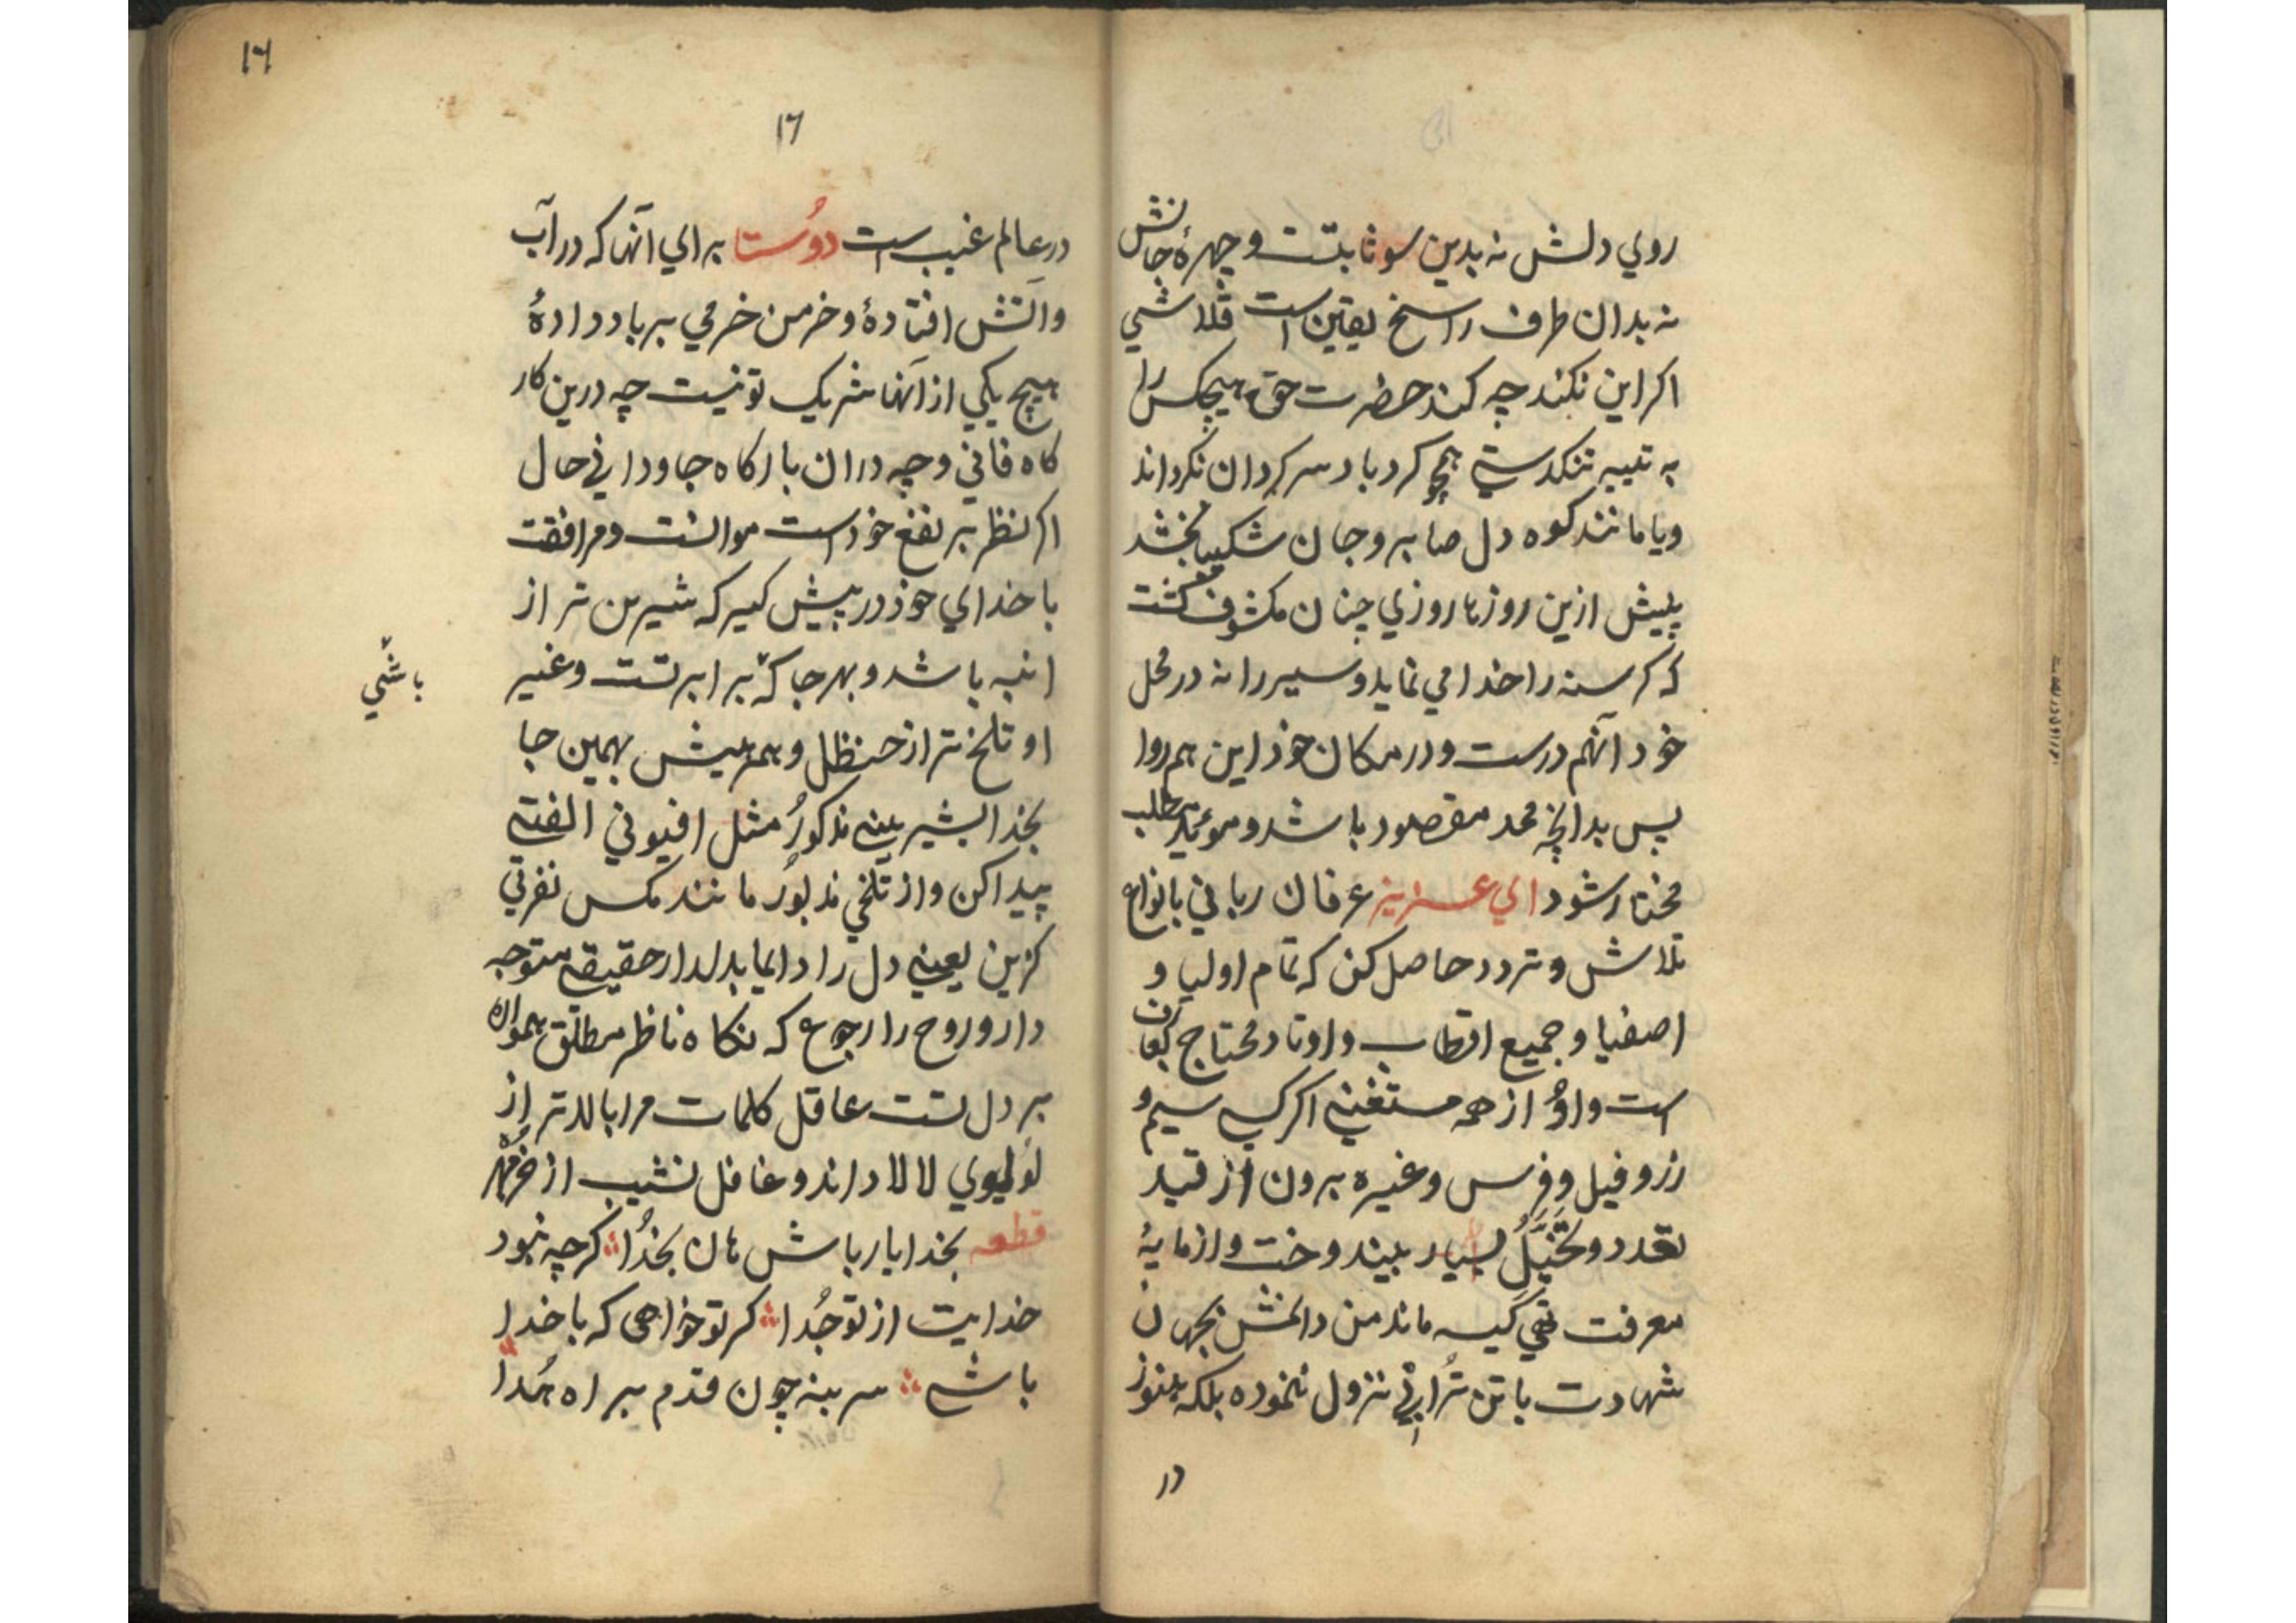 روي دلش نه بدين سو ثابتست و چهرهٔ جانش
نه بدان طرف راسخ يقين است قلاشي
اكر اين نكند چه كند حضرت حق هيچكس را
به تيه تنكدستي همچو كردباد سركردان نكرداند
ويا مانند كوه دل صابر و جان شكيبا بخشد
پيش ازين روزها روزي چنان مكشوف كشت
كه كرسنه را خدا مي نمايد و سير را نه در محل
خود آنهم درست و در مكان خود اين هم روا
پس بدانچه ممد مقصود باشد و مؤيد مطلب
مختار شود اي عزيز عرفان رباني بانواع
تلاش و تردد حاصل كن كه تمام اوليا و
اصفيا و جميع اقطاب و اوتاد محتاج بعارف
است و اوُ از همه مستغني اكر كسي سيم و
زر و فيل و فرس و غيره برون از قيد
تعدد و تخيّل بسيار بيندوخت و از مايهٔ
معرفت تهي كيسه ماند من دانمش بجهان
شهادت با تن تُرابي نزول ننموده بلكه هنوز
در
١٦
١٦
در عالم غيب است دوُستا براي آنها كه در آب
و آتش افتادهٔ و خرمن خرمي بر باد دادهٔ
هيچ يكي از آنها شريك تو نيست چه درين كار
كاه فاني و چه در ان باركاه جاوداني حال
اكر نظر بر نفع خود است موانست و مرافقت
با خداي خود در پيش كير كه شيرين تر از
انبه باشد و بهر جا كه برابر تست و غير
باشي
او تلخ تر از حنظل و همرهيش بهمين جا
بخدا بشيريني مذكورُ مثل افيوني الفتي
پيدا كن و از تلخي مذبورُ مانند مكس نفرتي
كزين يعني دل را دايما بدلدار حقيقي متوجه
دار و روح را رجوع كه نكاه ناظر مطلق همواره
بر دل تست عاقل كلمات مرا بالاتر از
لولوي لالا داند و غافل نشيب از خرمهره
قطعه بخدا يار باش هان بخدُا كرچه نبود
خدايت از تو جُدا كر تو خواهي كه با خدا
باشي سر بنه چون قدم براه هُدا